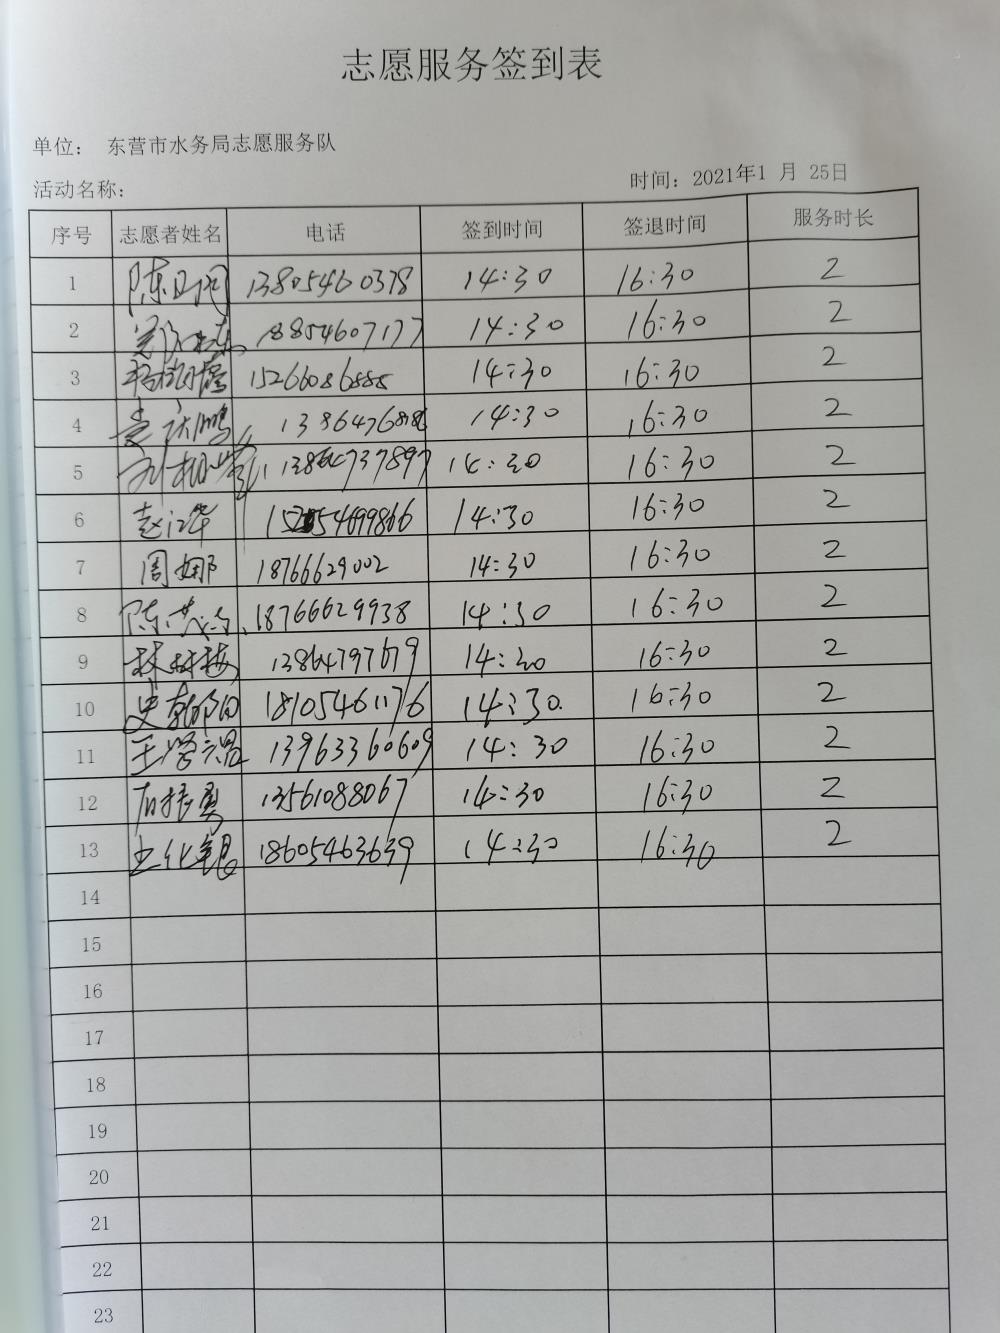 志愿服务签到表
单位： 东营市水务局志愿服务队
活动名称：
时间：2021年1 月 25日
序号 志愿者姓名 电话 签到时间 签退时间 服务时长
1 陈 13805460378 14:30 16:30 2
2 18854607177 14:30 16:30 2
3 杨 15266086888 14:30 16:30 2
4 14:30 16:30 2
5 刘 13864737897 14:30 16:30 2
6 赵江华 14:30 16:30 2
7 周娜 18766629002 14:30 16:30 2
8 陈 18766629938 14:30 16:30 2
9 林 13864797679 14:30 16:30 2
10 史 18105461176 14:30. 16:30 2
11 王 13963360609 14:30 16:30 2
12 石振勇 13561088067 14:30 16:30 2
13 18605463639 14:30 16:30 2
14
15
16
17
18
19
20
21
22
23